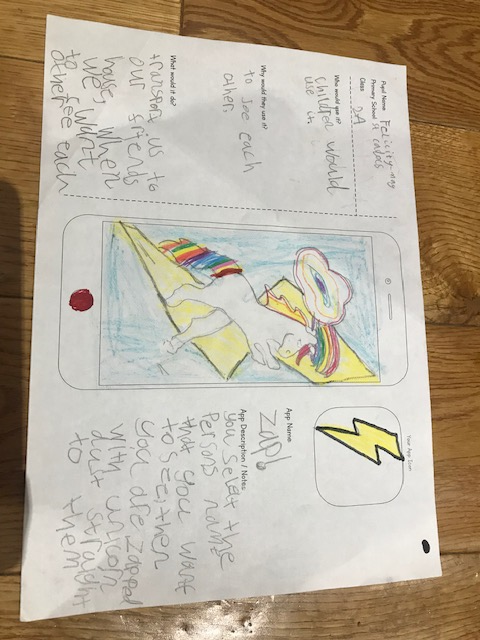 Pupil Name Felicity-may
Primary School st cadocs
Class 2A
Who would use it?
children would
use it.
Why would they use it?
to see each
other
What would it do?
transport us to
our friends
house, when
we want
to see each
other
Your App Icon
App Name
Zap!
App Description / Notes
you selat the
Persons name
that you want
to see, then
you are zapped
with unicorn
dust straight
to them